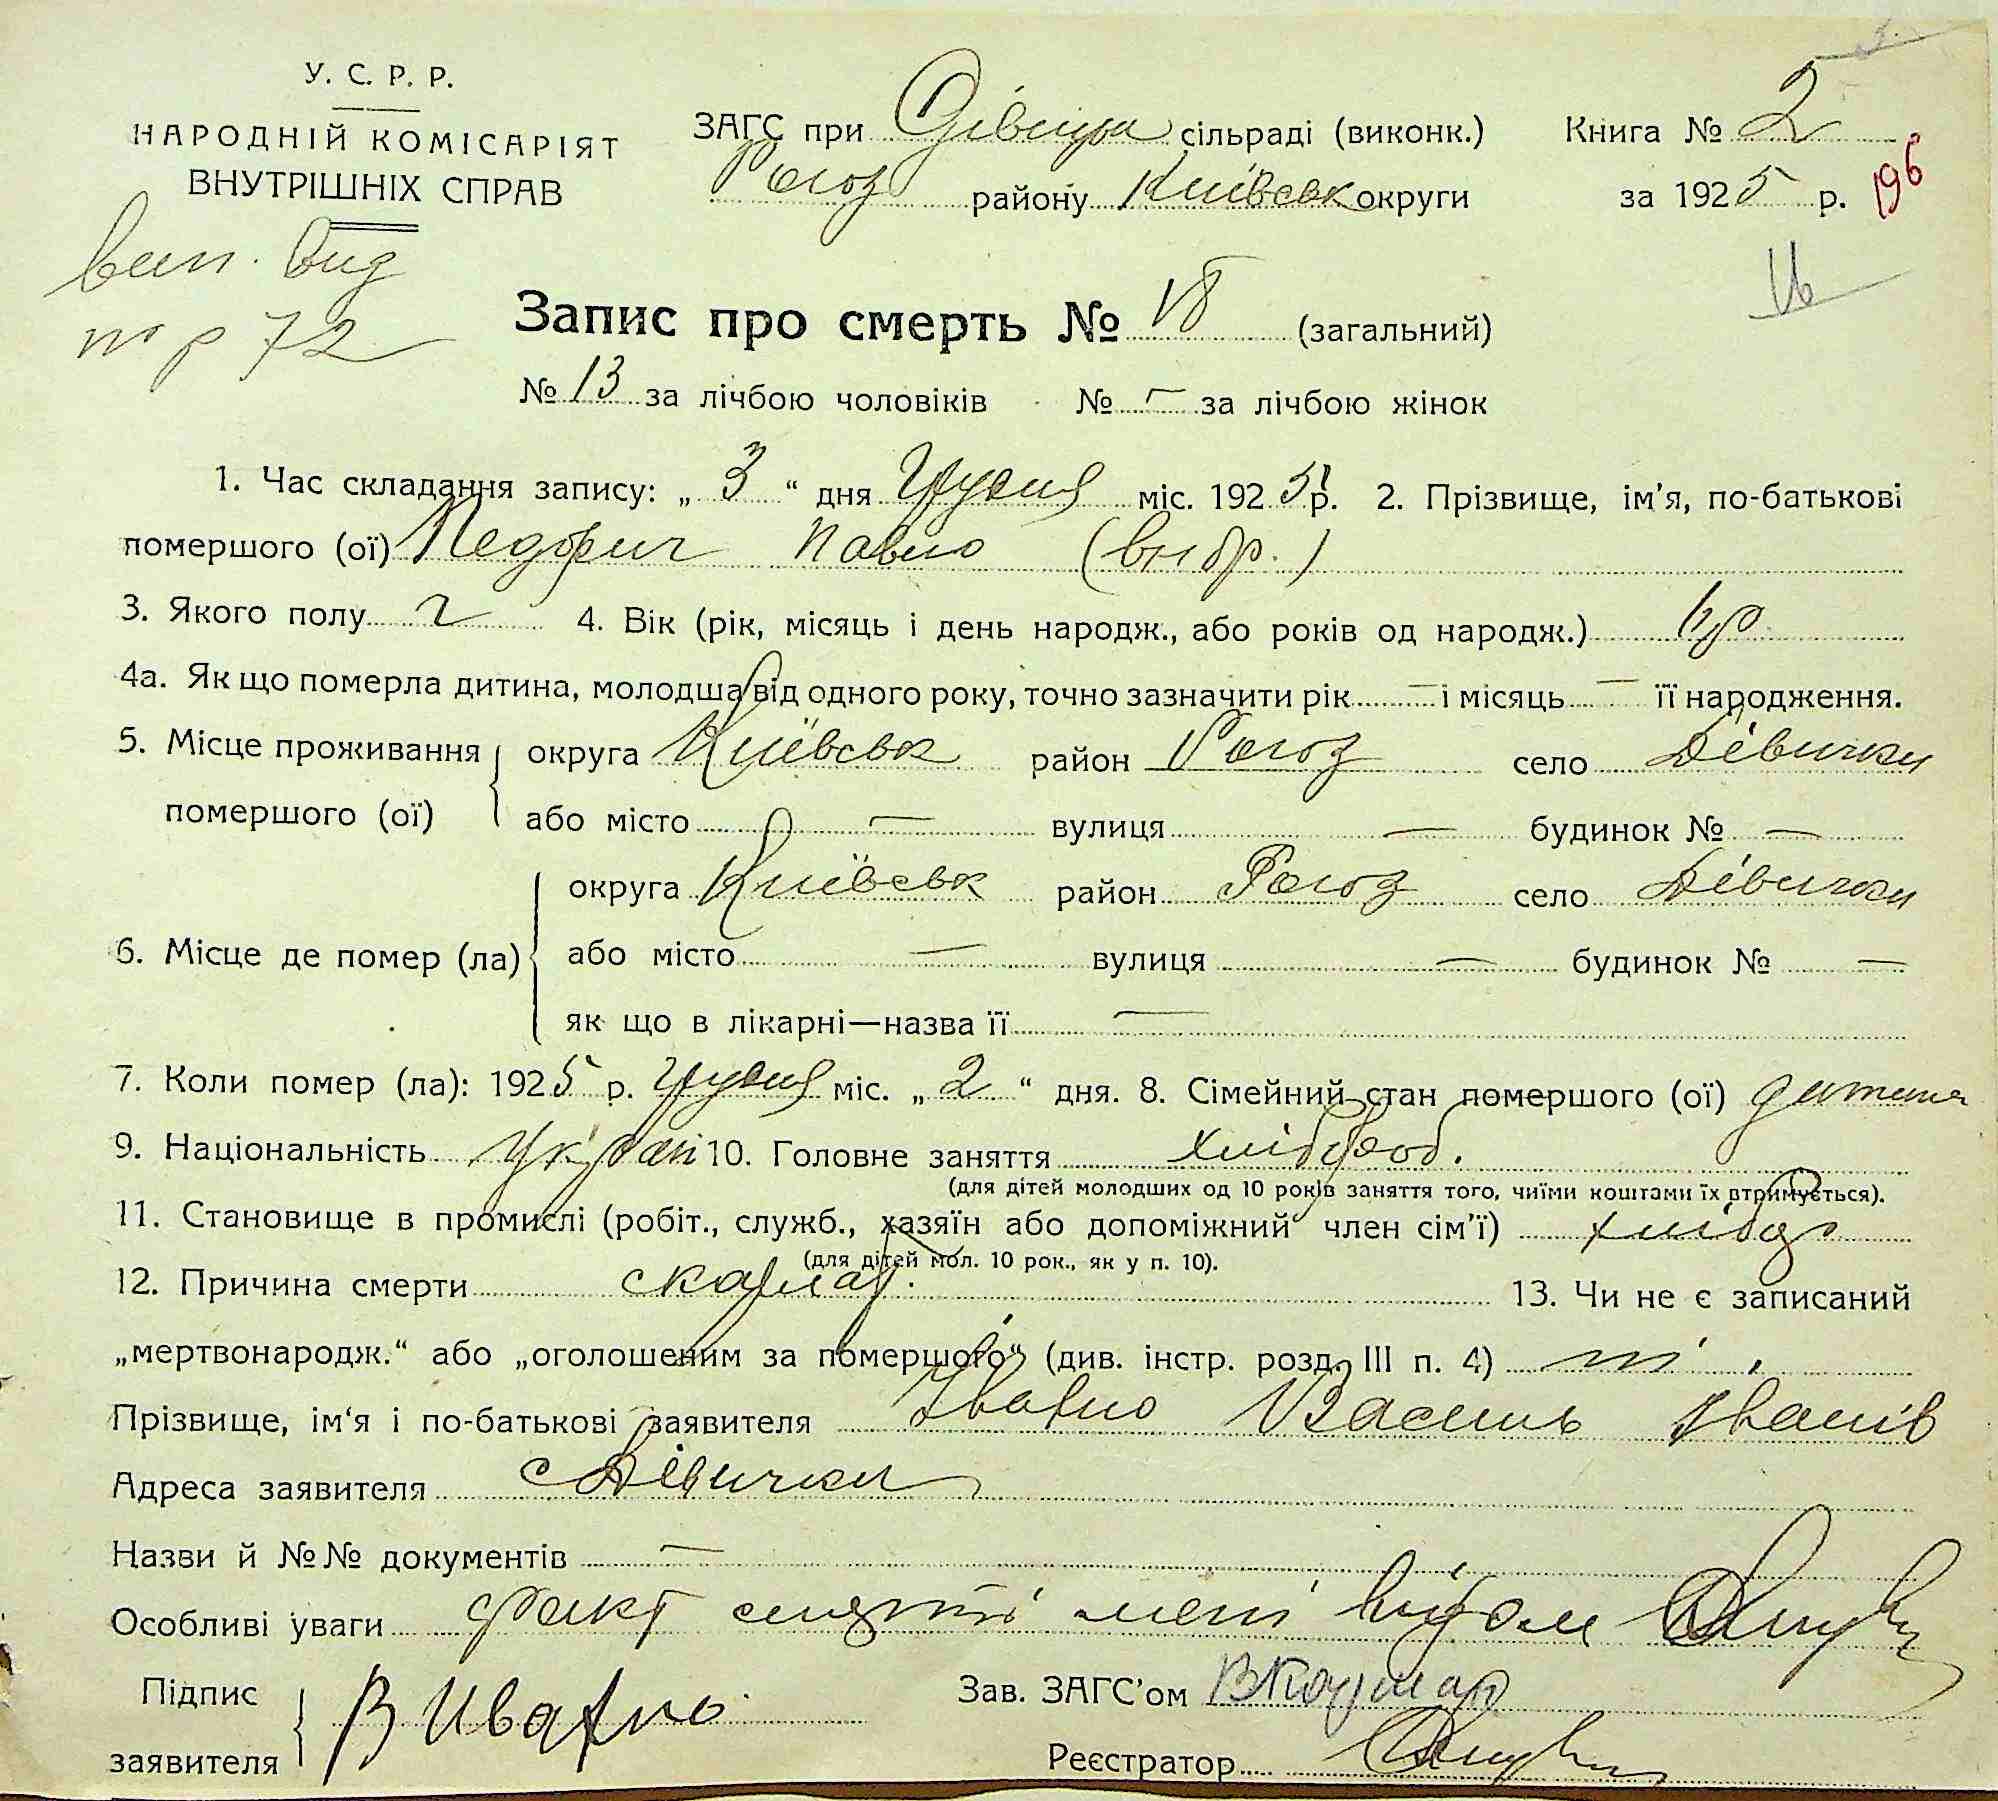 У. С. Р. Р.
НАРОДНІЙ КОМІСАРІЯТ
ВНУТРІШНІХ СПРАВ
ЗАГС при сільраді (виконк.) Книга № 2
Рогоз району Київськ округи за 1925 р. 196
16
вид
72
Запис про смерть № (загальний)
№ 13 за лічбою чоловіків № – за лічбою жінок
1. Час складання запису: „ 3 “ дня Грудня міс. 1925 р. 2. Прізвище, ім’я, по-батькові
помершого (ої) Павло
3. Якого полу ч 4. Вік (рік, місяць і день народж., або років од народж.)
4а. Як що померла дитина, молодша від одного року, точно зазначити рік — і місяць — її народження.
5. Місце проживання округа Київськ район Рогоз село Дівички
помершого (ої) або місто — вулиця — будинок № —
6. Місце де помер (ла) округа Київськ район Рогоз село Дівички
або місто — вулиця — будинок № —
як що в лікарні—назва її —
7. Коли помер (ла): 1925 р. Грудня міс. „ 2 “ дня. 8. Сімейний стан помершого (ої) дитина
9. Національність Україн 10. Головне заняття хлібороб.
(для дітей молодших од 10 років заняття того, чиїми коштами їх втримується).
11. Становище в промислі (робіт., служб., хазяїн або допоміжний член сім’ї)
(для дітей мол. 10 рок., як у п. 10).
12. Причина смерти скарлат. 13. Чи не є записаний
„мертвонародж.“ або „оголошеним за помершого“ (див. інстр. розд. III п. 4) ні
Прізвище, ім‘я і по-батькові заявителя Івахно Василь Іванів
Адреса заявителя с Дівички
Назви й №№ документів —
Особливі уваги факт смерті мені відом
Підпис заявителя В Ивахно Зав. ЗАГС’ом
Реєстратор